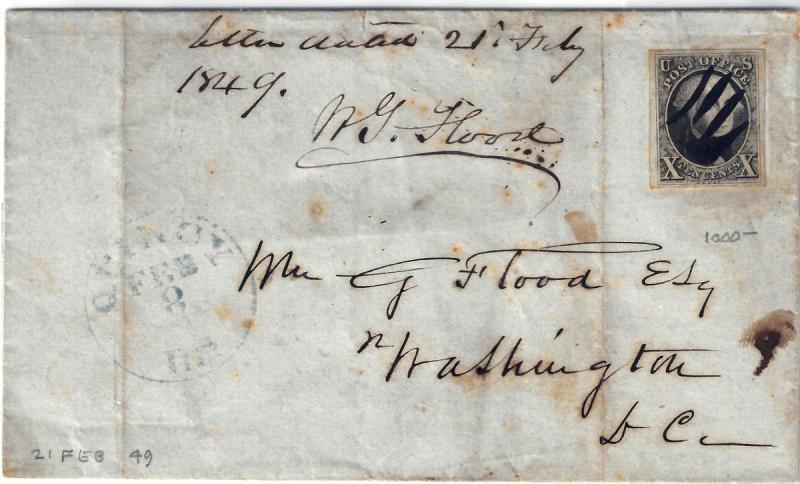 letter dated 21st Feby
1849.
W. G. Flood
U S
POST OFFICE
X TEN CENTS X
1000-
QUINCY
FEB
Ill
Wm G Flood Esq
Washington
D C
21 FEB 49